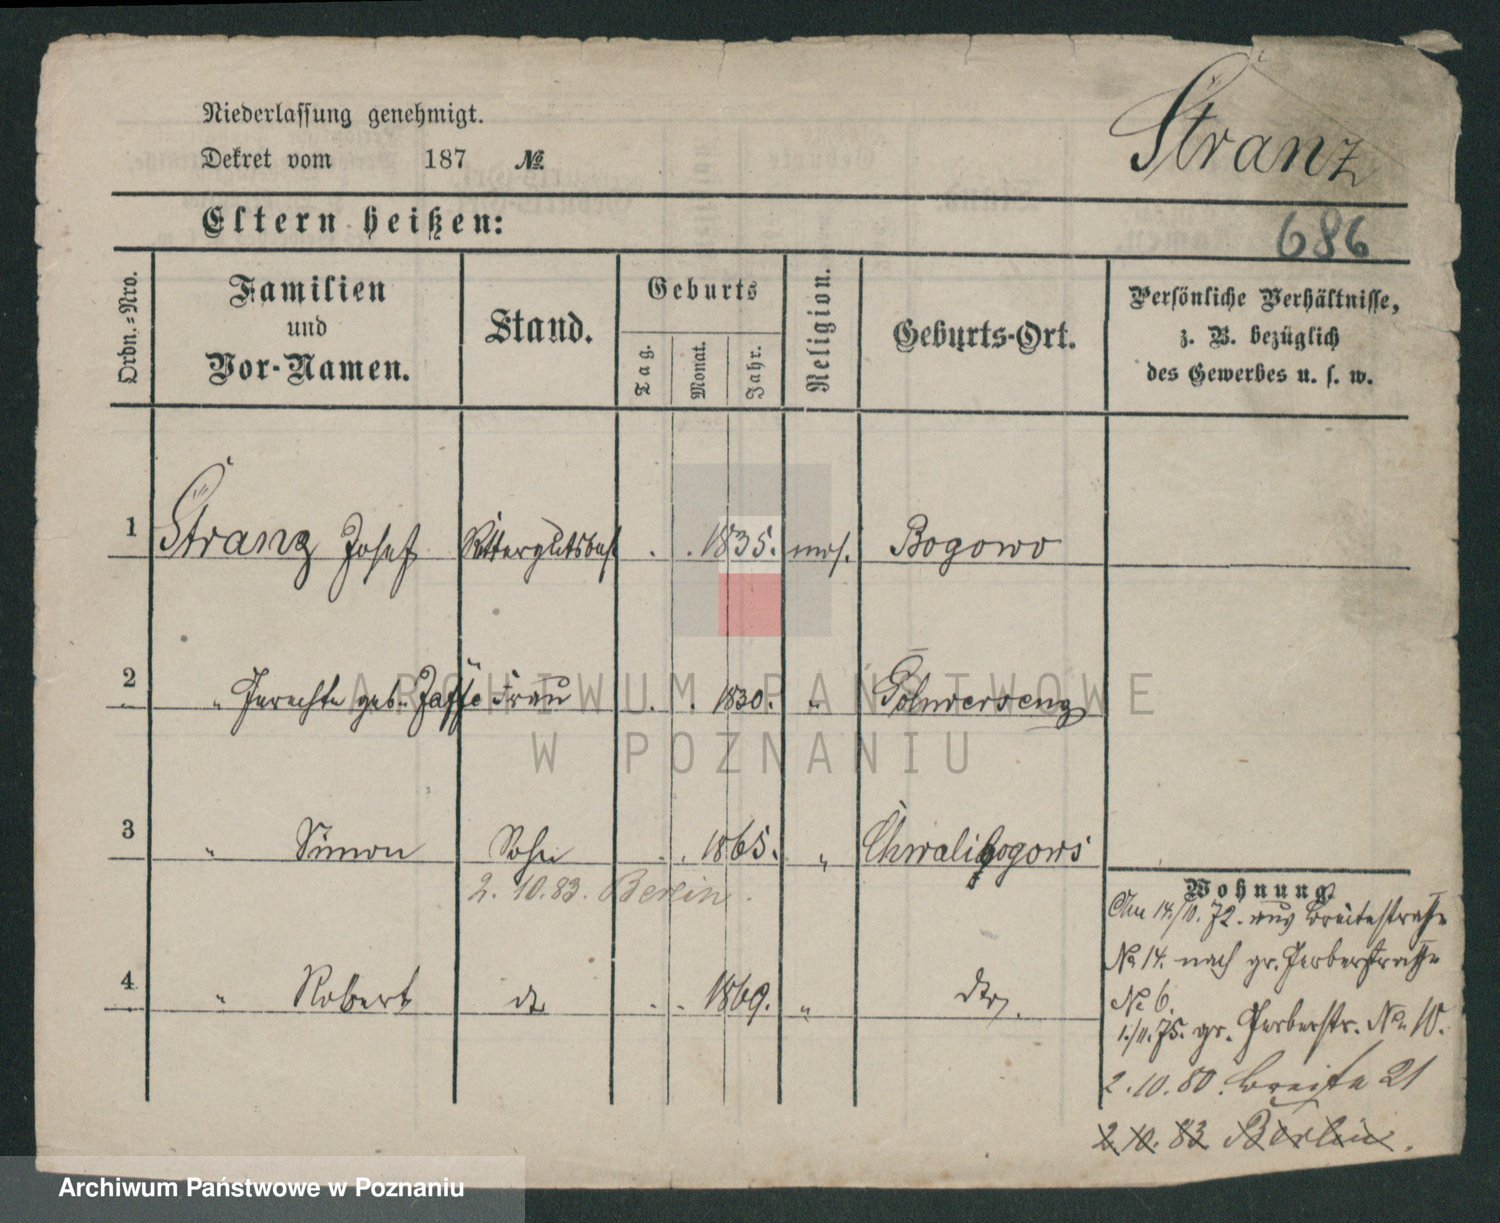 Stranz
Niederlassung genehmigt.
Dekret vom 187 №
686
Eltern heißen:
Ordn.-Nro.
Familien
und
Vor-Namen.
Stand.
Geburts
Tag.
Monat.
Jahr.
Religion.
Geburts-Ort.
Persönliche Verhältnisse,
z. B. bezüglich
des Gewerbes u. s. w.
1 Stranz Josef Rittergutsbes . . 1835. mos. Bogowo
2 " geb. Jaffe Frau . . 1830. "
3 " Simon Sohn . . 1865. "
2. 10. 83. Berlin.
4 " Robert dto . . 1869. " dto.
Wohnung
Am 14/10. 72. aus Breitestraße
No 14. nach gr. Gerberstraße
No 6.
1./11. 75. gr. Gerberstr. No. 10.
2. 10. 80. Breite 21
2. 10. 83 Berlin.
ARCHIWUM PAŃSTWOWE
W POZNANIU
Archiwum Państwowe w Poznaniu